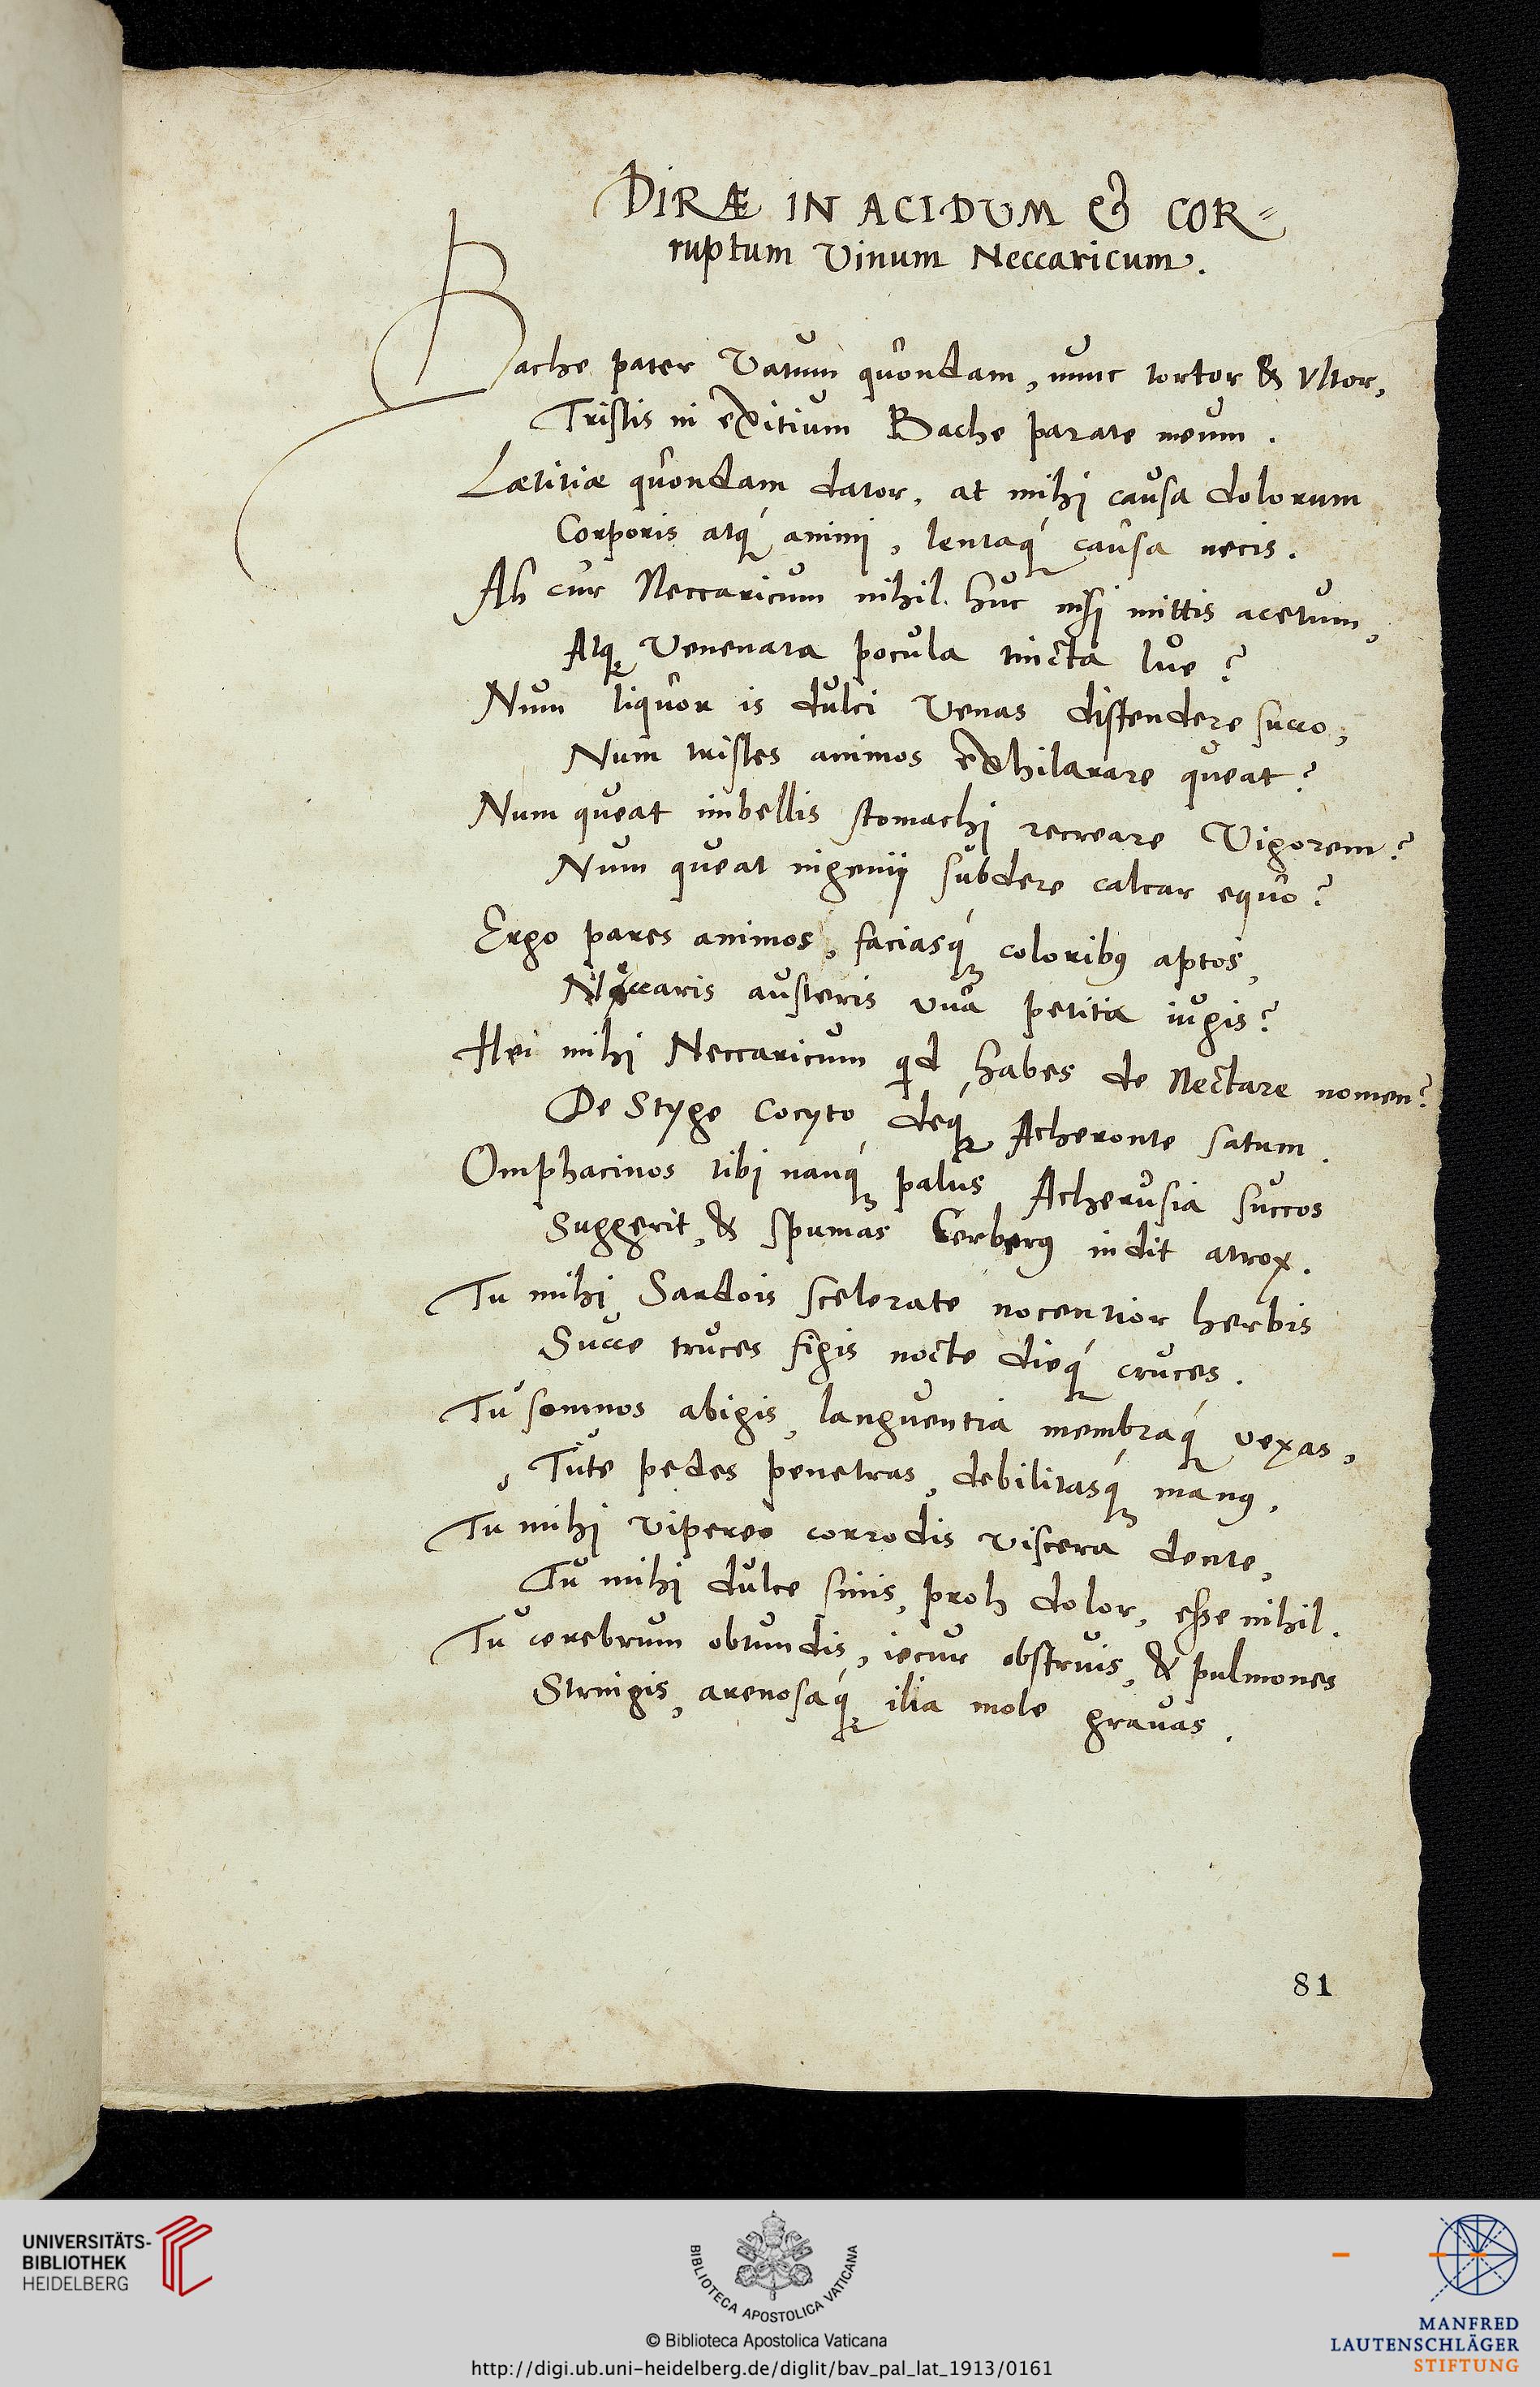 DIRÆ IN ACIDUM & COR=
ruptum Vinum Neccaricum.
Bache pater Vatum quondam, nunc tortor & Vltor,
Tristis in exitium Bache parate meum.
Lætitiæ quondam dator, at mihi causa dolorum
Corporis atq́ꝫ animi, lentaq́ꝫ causa necis.
Ah cur Neccaricum nihil huc nisi mittis acetum,
Atqꝫ Venenata pocula tincta lue?
Num liquor is dulci Venas distendere succo,
Num tristes animos exhilarare queat?
Num queat imbellis stomachi recreare Vigorem?
Num queat ingenij subdere calcar equo?
Ergo pares animos, faciasq́ꝫ coloribꝰ aptos,
Neccaris austeris uua petita iugis?
Hei mihi Neccaricum qd habes de Nectare nomen?
De Styge Cocyto deq́ꝫ Acheronte satum.
Omphacinos tibi nanq́ꝫ palus Acherusia succos
Suggerit, & spumas Cerberꝰ indit atrox.
Tu mihi Sardois scelerate nocentior herbis
Succe truces figis nocte dieq́ꝫ cruces.
Tu somnos abigis, languentia membraq́ꝫ vexas,
Tute pedes penetras, debilitasq́ꝫ manꝰ,
Tu mihi Vipereo corrodis Viscera dente,
Tu mihi dulce sinis, proh dolor, esse nihil.
Tu cerebrum obtundis, iecur obstruis, & pulmones
Stringis, arenosaq́ꝫ ilia mole grauas.
81
UNIVERSITÄTS-
BIBLIOTHEK
HEIDELBERG
BIBLIOTECA APOSTOLICA VATICANA
© Biblioteca Apostolica Vaticana
http://digi.ub.uni-heidelberg.de/diglit/bav_pal_lat_1913/0161
MANFRED
LAUTENSCHLÄGER
STIFTUNG